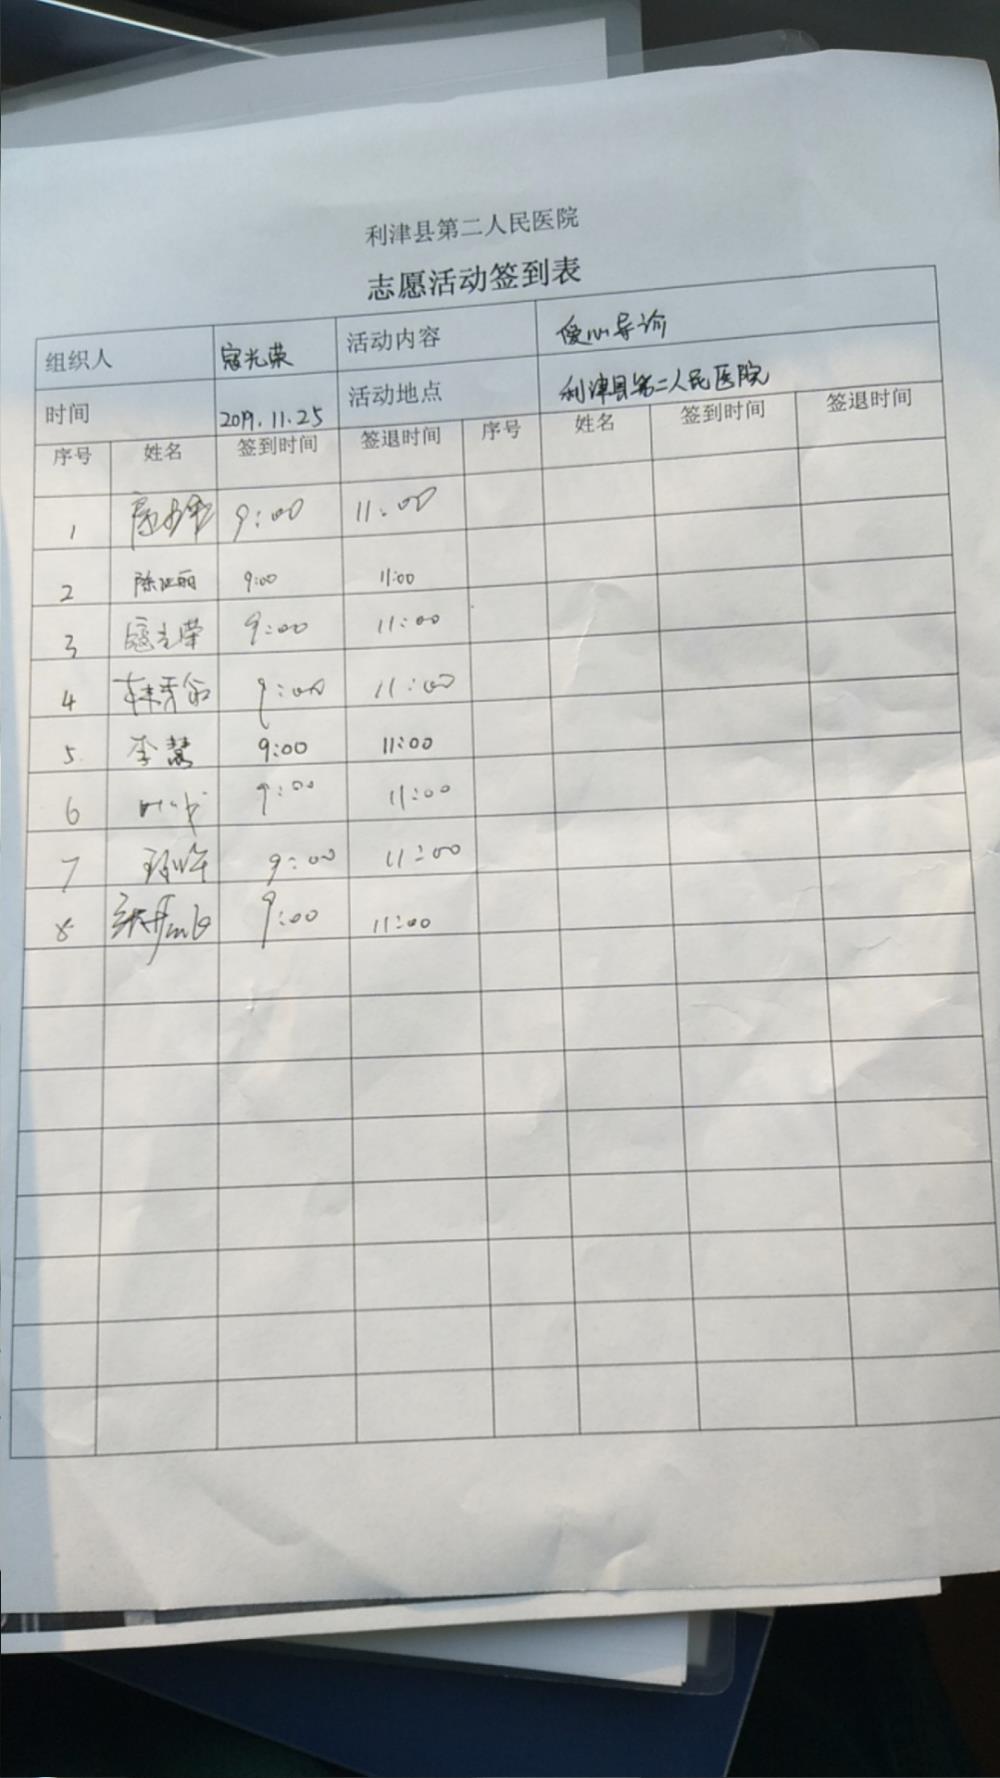 利津县第二人民医院
志愿活动签到表
组织人 寇光荣 活动内容 爱心导诊
时间 2019.11.25 活动地点 利津县第二人民医院
序号 姓名 签到时间 签退时间 序号 姓名 签到时间 签退时间
1 9:00 11:00
2 9:00 11:00
3 寇光荣 9:00 11:00
4 9:00 11:00
5 李慧 9:00 11:00
6 9:00 11:00
7 9:00 11:00
8 9:00 11:00